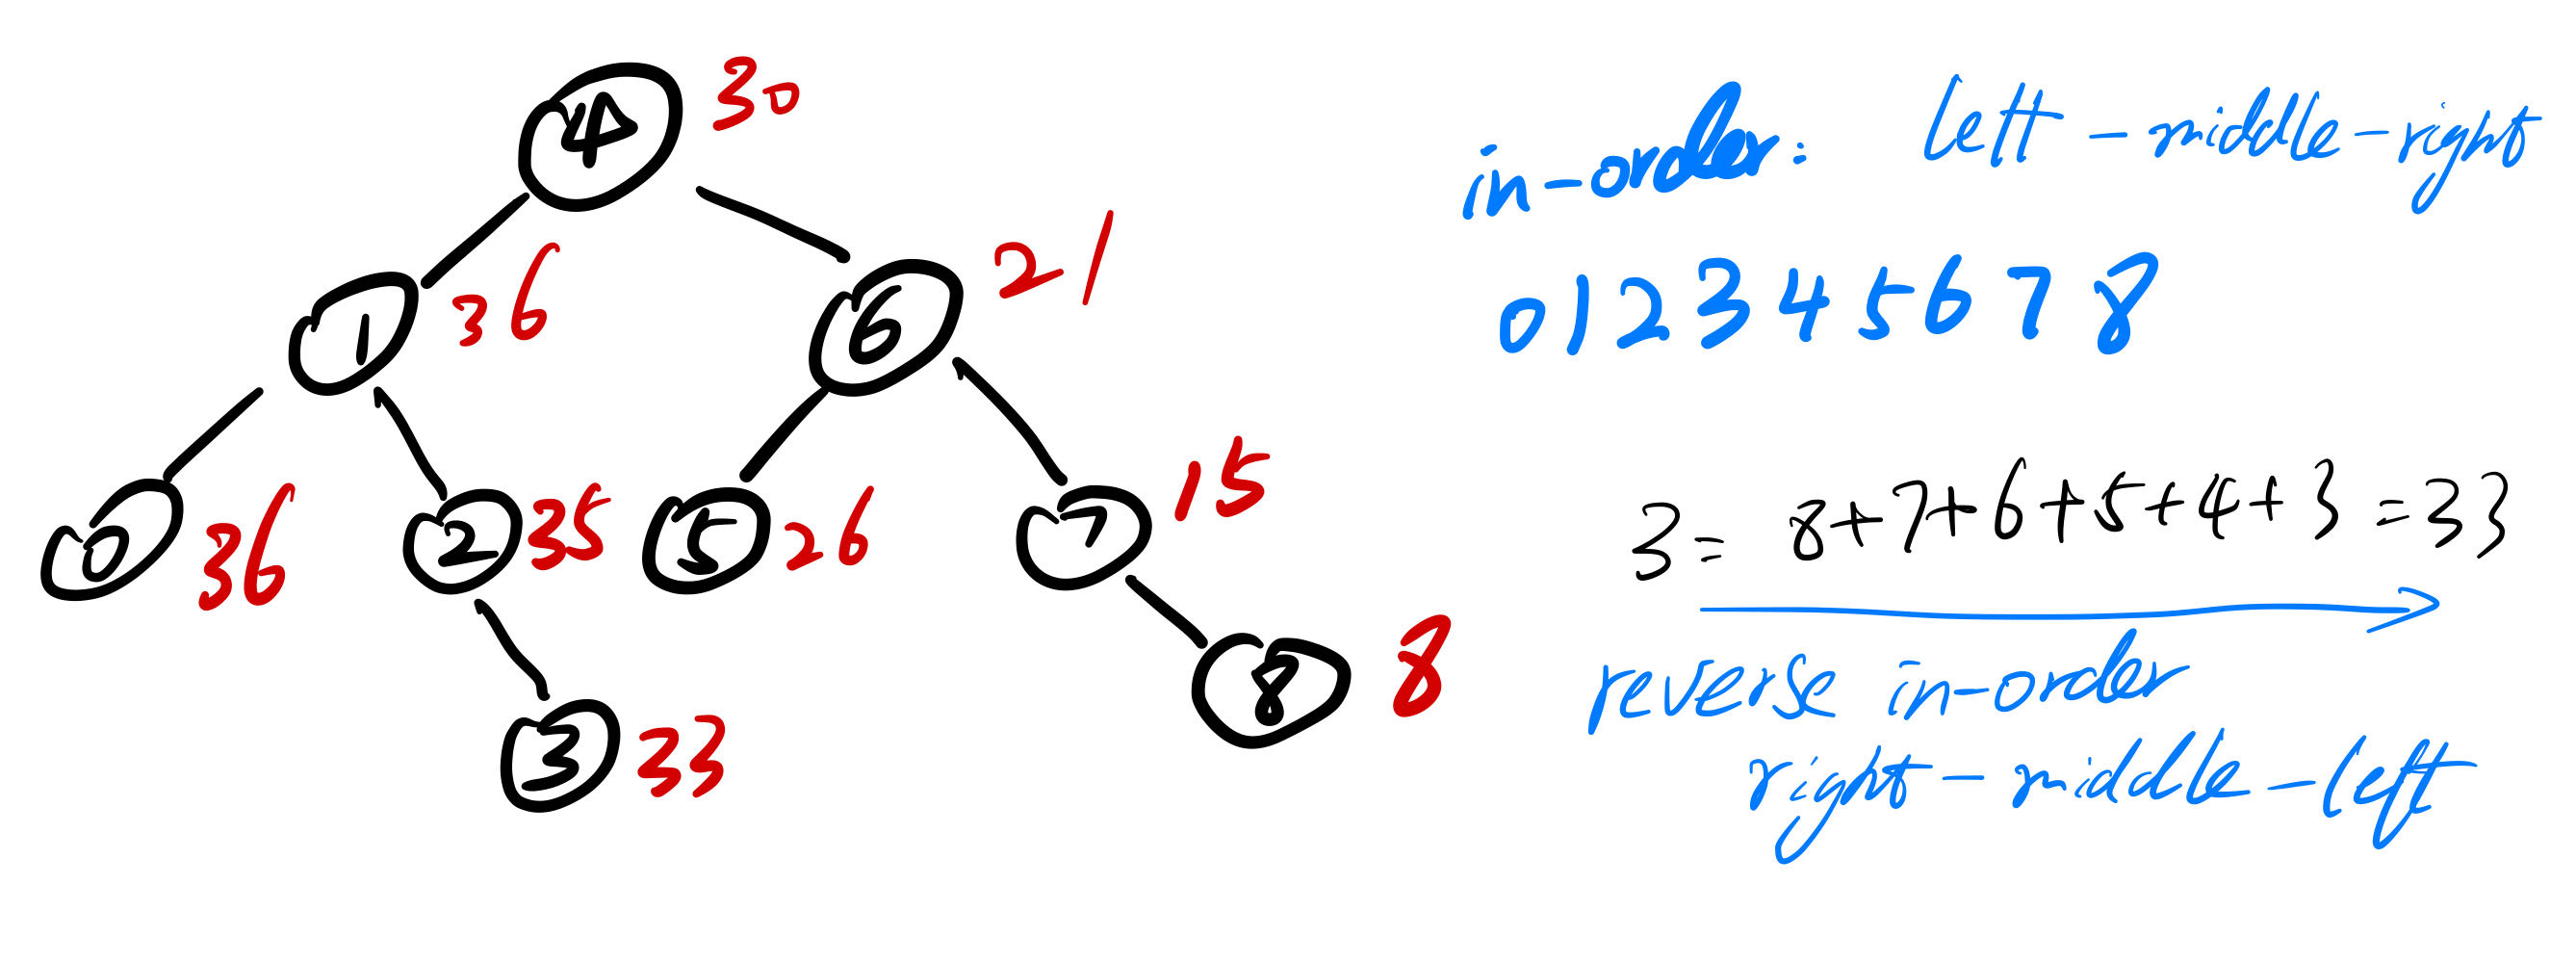 4 30
1 36
6 21
0 36
2 35
5 26
7 15
3 33
8 8
in-order: left-middle-right
0 1 2 3 4 5 6 7 8
3= 8+7+6+5+4+3 =33
reverse in-order
right-middle-left